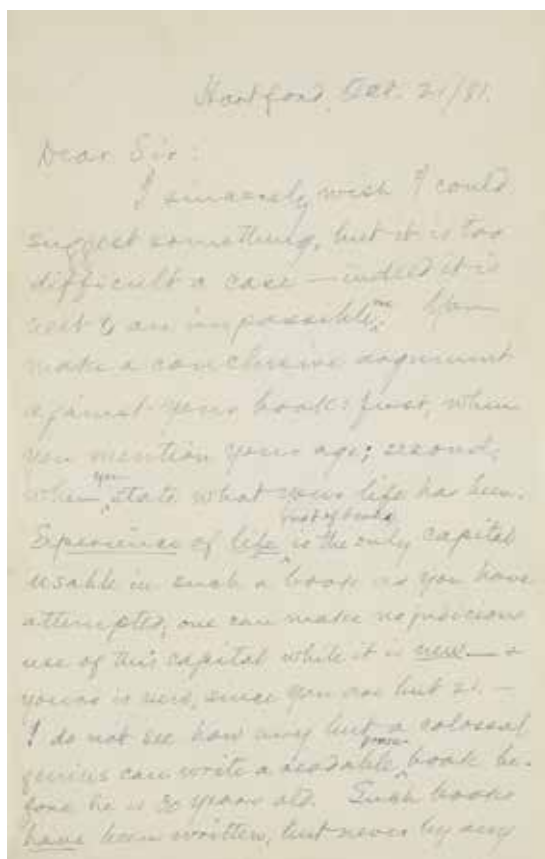 Hartford, Oct. 21/81.
Dear Sir:
I sincerely wish I could
suggest something, but it is too
difficult a case — indeed it is
next to an impossible one. You
make a conclusive argument
against your book: first, when
you mention your age; second,
when you state what your life has been.
Experience of life (not of books) is the only capital
usable in such a book as you have
attempted; one can make no judicious
use of this capital while it is new — &
yours is new, since you are but 21. —
I do not see how any but a colossal
genius can write a readable prose book be-
fore he is 30 years old. Such books
have been written, but never by any